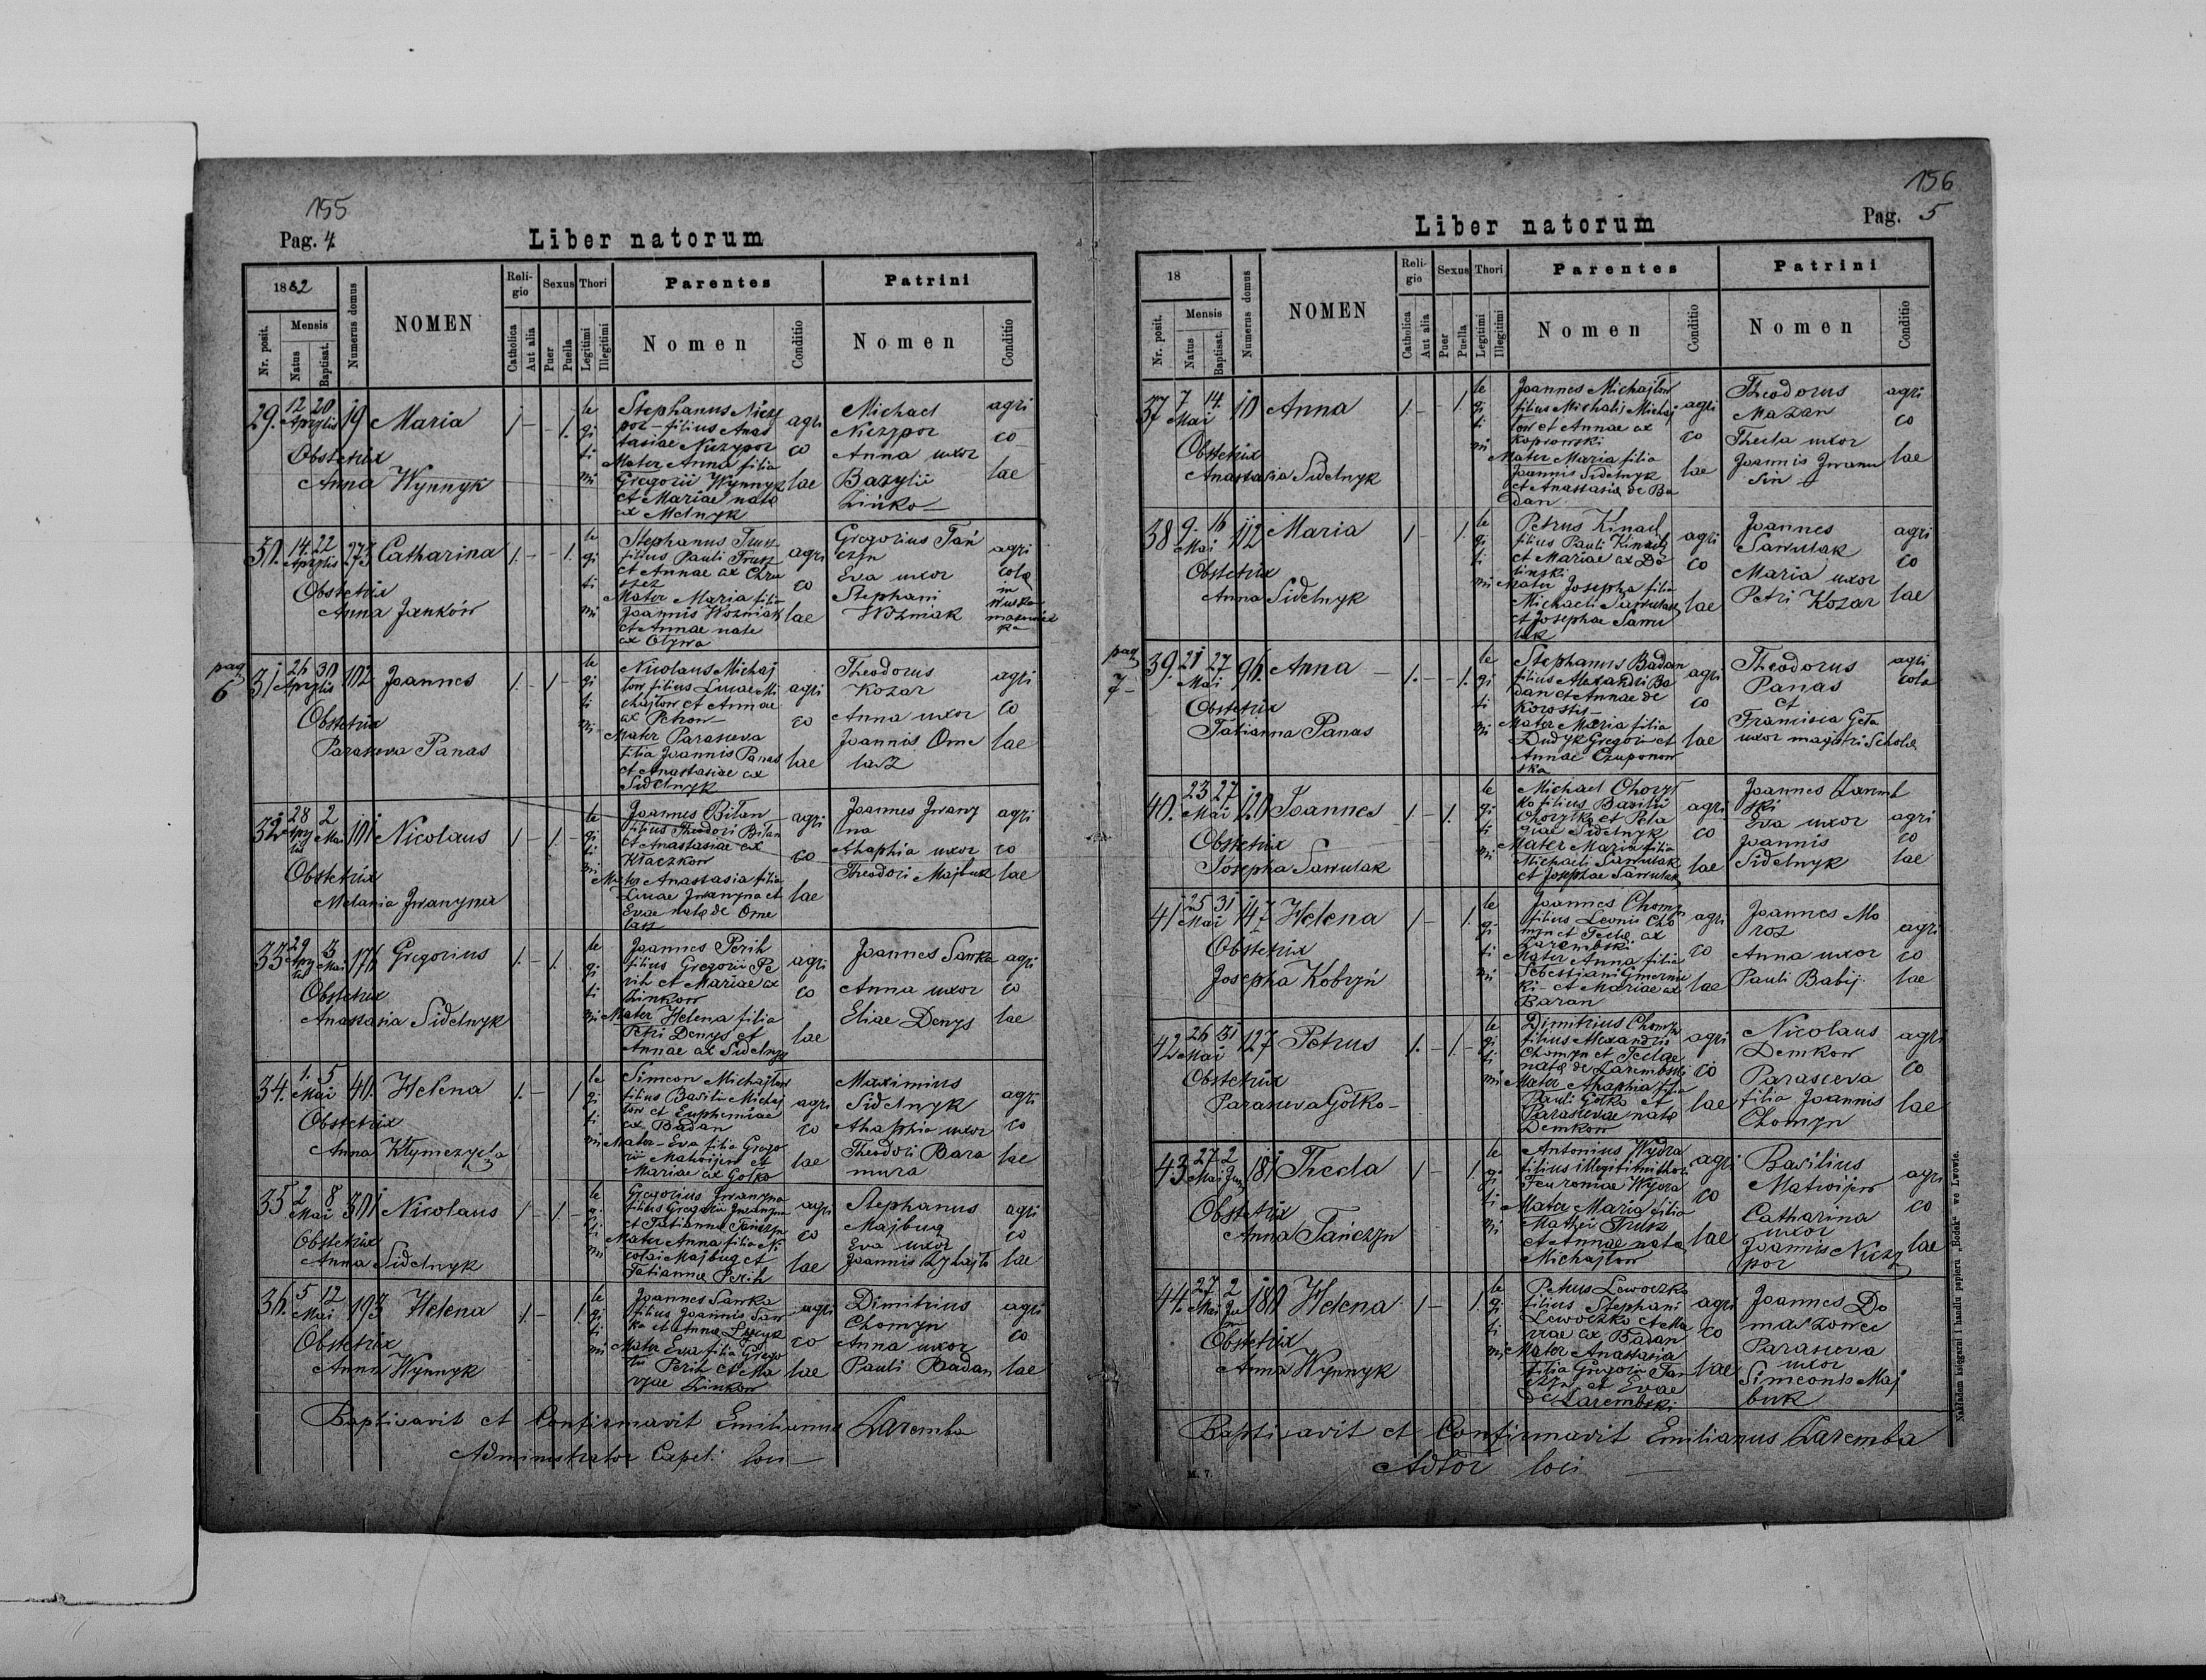 155
Pag. 4
Liber natorum
1882
Mensis
Nr. posit.
Natus
Baptisat.
Numerus domus
NOMEN
Reli-
gio
Catholica
Aut alia
Sexus
Puer
Puella
Thori
Legitimi
Illegitimi
Parentes
Nomen
Conditio
Patrini
Nomen
Conditio
29. 12 20 19 Maria
Aprylis
Obstetrix
Anna Wynnyk
le gi ti mi
Stephanus Niczy
por - filius Anas
tasiae Niczypor
Mater Anna filia
Gregorii Wynnyk
et Mariae nata
ex Melnyk
agri co lae
Michael
Niczypor
Anna uxor
Bazylii
Zińko
agri co lae
30. 14. 22 273 Catharina
Aprylis
Obstetrix
Anna Janków
le gi ti mi
Stephanus Trusz
filius Pauli Trusz
et Annae ex Chru
Mater Maria filia
Joannis Wozniak
et Annae nate
agri co lae
Gregorius Tań
czyn
Eva uxor
Stephani
Wozniak
agri
cola
in
pag
6
31 26 30 102 Joannes
Aprylis
Obstetrix
Parasceva Panas
le gi ti mi
Nicolaus Michaj
low filius Lucae Mi
chajlow et Annae
ex Petrow
Mater Parasceva
filia Joannis Panas
et Anastasiae ex
Sidelnyk
agri co lae
Theodorus
Kozar
Anna uxor
Joannis Ome
lasz
agri co lae
32 28 2 101 Nicolaus
Apry Mai
lis
Obstetrix
Melania Jwanyna
le gi ti mi
Joannes Bitan
filius Theodori Bitan
et Anastasiae ex
Klaczkow
Mater Anastasia filia
Lucae Jwanyna et
Evae nata de Ome
lasz
agri co lae
Joannes Jwany
na
Ahaphia uxor
Theodori Majbuk
agri co lae
33 29 3 176 Gregorius
Apry Mai
lis
Obstetrix
Anastasia Sidelnyk
le gi ti mi
Joannes Perih
filius Gregorii Pe
rih et Mariae ex
Zinkow
Mater Helena filia
Petri Denys et
Annae ex Sidelnyk
agri co lae
Joannes Sawka
Anna uxor
Eliae Denys
agri co lae
34. 1. 5 40. Helena
Mai
Obstetrix
Anna Klymczycha
le gi ti mi
Simeon Michajlow
filius Basilii Michaj
low et Euphemiae
ex Badan
Mater - Eva filia Grego
rii Matwijew et
Mariae ex Gotko
agri co lae
Maximius
Sidelnyk
Ahaphia uxor
Theodori Bara
mura
agri co lae
35 2 8 301 Nicolaus
Mai
Obstetrix
Anna Sidelnyk
le gi ti mi
Gregorius Jwanyna
filius Gregorii Jwanyna
et Tatianna Tanczyn
Mater Anna filia Ni
colai Majbug et
Tatianna Perih
agri co lae
Stephanus
Majbug
Eva uxor
Joannis
agri co lae
36. 5 12 193 Helena
Mai
Obstetrix
Anna Wynnyk
le gi ti mi
Joannes Sawka
filius Joannis Saw
ka et Anna
Mater Eva filia Grego
rii Perih et Ma
ryae Zinkow
agri co lae
Dimitrius
Chomyn
Anna uxor
Pauli Badan
agri co lae
Baptisavit et Confirmavit Emilianus Zaremba
Administrator Capel. loci
156
Pag. 5
Liber natorum
18
Mensis
Nr. posit.
Natus
Baptisat.
Numerus domus
NOMEN
Reli-
gio
Catholica
Aut alia
Sexus
Puer
Puella
Thori
Legitimi
Illegitimi
Parentes
Nomen
Conditio
Patrini
Nomen
Conditio
37 7 14. 10 Anna
Mai
Obstetrix
Anastasia Sidelnyk
le gi ti mi
Joannes Michajlow
filius Michalis Michaj
low et Annae ex
Koprowski
Mater Maria filia
Joannis Sidelnyk
et Anastasia de Ba
dan
agri co lae
Theodorus
Mazan
Thecla uxor
Joannis Jwanu
sin
agri co lae
38 9. 16 112 Maria
Mai
Obstetrix
Anna Sidelnyk
le gi ti mi
Petrus Kinach
filius Pauli Kinach
et Mariae ex Do
linski
Mater Josepha filia
Michaeli Sawulak
et Josephae Sawu
lak
agri co lae
Joannes
Sawulak
Maria uxor
Petri Kozar
agri co lae
pag
7
39. 21 27 96. Anna
Mai
Obstetrix
Tatianna Panas
le gi ti mi
Stephanus Badan
filius Alexandri Ba
dan et Annae de
Korostij
Mater Maria filia
Dudyk Gregorii et
Annae Czuponow
ska
agri co lae
Theodorus
Panas
et
Francisca
uxor magistri Scholae
agri
cola
40. 23 27 120 Joannes
Mai
Obstetrix
Josepha Sawulak
le gi ti mi
Michael Choryt
ko filius Basilii
Chorytko et Pela
giae Sidelnyk
Mater Maria filia
Michaeli Sawulak
et Josephae Sawulak
agri co lae
Joannes Zaremb
ski
Eva uxor
Joannis
Sidelnyk
agri co lae
41 25 31 147 Helena
Mai
Obstetrix
Josepha Kobryń
le gi ti mi
Joannes Chomyn
filius Leonis Cho
myn et Tecle ex
Zarembski
Mater Anna filia
Sebestiani Gmernic
ki - et Mariae ex
Baran
agri co lae
Joannes Mo
roz
Anna uxor
Pauli Babij
agri co lae
42 26 31 127 Petrus
Mai
Obstetrix
Parasceva Gotko
le gi ti mi
Dimitrius Chomyn
filius Alexandri
Chomyn et Teclae
nata de Zarembski
Mater Ahaphia filia
Pauli Gotko et
Parascevae nata
Demkow
agri co lae
Nicolaus
Demkow
Parasceva
filia Joannis
Chomyn
agri co lae
43 27 2 181 Thecla
Mai Juny
Obstetrix
Anna Tańczyn
le gi ti mi
Antonius Wydra
filius illegitimithori
Feuroniae Wydra
Mater Maria filia
Mathei Trusz
et Annae nata
Michajlow
agri co lae
Basilius
Matwijew
Catharina
uxor
Joannis Niczy
por
agri co lae
44. 27 2 180 Helena
Mai Ju
Obstetrix
Anna Wynnyk
le gi ti mi
Petrus Lewoczko
filius Stephani
Lewoczko et Ma
riae ex Badan
Mater Anastasia
filia Gregorii Tan
czyn et Evae
de Zarembski
agri co lae
Joannes Do
maszowec
Parasceva
uxor
Simeonis Maj
buk
Baptisavit et Confirmavit Emilianus Zaremba
Adtor loci
M. 7.
Nakładem księgarni i handlu papieru „Bodek“ we Lwowie.